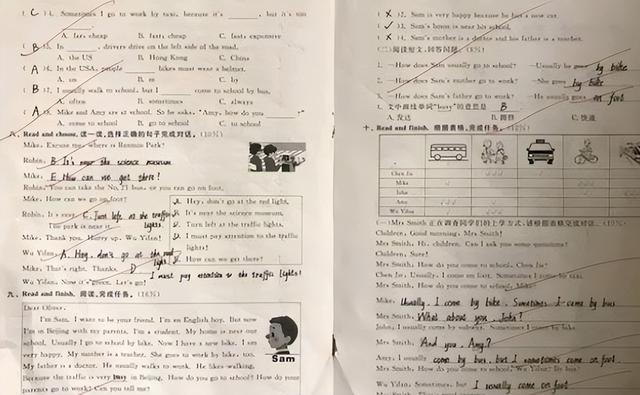 ( C ) 14. Sometimes I go to work by taxi, because it's ____, but it's too
____.
A. fast; cheap B. fast; cheap C. fast; expensive
( B ) 15. In ____, drivers drive on the left side of the road.
A. the US B. Hong Kong C. China
( A ) 16. In the USA, people ____ bikes must wear a helmet.
A. on B. in C. by
( B ) 17. I usually walk to school, but I ____ come to school by bus.
A. often B. sometimes C. always
( A ) 18. Mike and Amy are at school. So he asks: "Amy, how do you ____?"
A. come to school B. go to school C. to school
八、Read and choose. 读一读,选择正确的句子完成对话。(10%)
Mike: Excuse me, where is Renmin Park?
Robin: B It's near the science museum
Mike: E How can we get there!
Robin: You can take the No. 21 bus, or you can go on foot.
Mike: How can we go on foot?
Robin: It's easy. C. Turn left at the traffic lights.
The park is near it.
Mike: Thank you. Hurry up, Wu Yifan!
Wu Yifan: A. Hey, don't go at the red light.
Mike: That's right. Thanks. D I must pay attention to the traffic lights!
Wu Yifan: Now it's green. Let's go!
A. Hey, don't go at the red light.
B. It's near the science museum.
C. Turn left at the traffic lights.
D. I must pay attention to the traffic
lights!
E. How can we get there?
九、Read and finish. 阅读,完成任务。(16%)
Dear Oliver,
I'm Sam. I want to be your friend. I'm an English boy. But now
I'm in Beijing with my parents. I'm a student. My home is near our
school. Usually I go to school by bike. Now I have a new bike. I am
very happy. My mother is a teacher. She goes to work by bike, too.
My father is a doctor. He usually walks to work. He likes walking,
because the traffic is very busy in Beijing. How do you go to school? How do your
parents go to work? Can you tell me?
Sam
( X ) 2. Sam is very happy because he has a new car.
( X ) 3. Sam's home is near his school.
( X ) 4. Sam's mother is a doctor and his father is a teacher.
(二)阅读短文,回答问题。(8%)
1. —How does Sam usually go to school? —Usually he goes by bike
2. —How does Sam's mother go to work? —She goes by bike
—How does Sam's father go to work? —He usually goes on foot
4. 文中画线单词"busy"的意思是 B
A. 发达 B. 拥挤 C. 快速
十、Read and finish. 根据表格,完成任务。(12%)
Chen Jie
Mike
John
Amy
Wu Yifan
(一)Mrs Smith 正在调查同学们的上学方式,请根据表格完成对话。
Children: Good morning, Mrs Smith!
Mrs Smith: Hi, children. Can I ask you some questions?
Children: Sure!
Mrs Smith: How do you come to school, Chen Jie?
Chen Jie: Usually, I come on foot. Sometimes I come by taxi.
Mrs Smith: How do you come to school, Mike?
Mike: Usually, I come by bike. Sometimes I come by bus.
Mrs Smith: What about you, John?
John: I usually come by subway. Sometimes I come by bike.
Mrs Smith: And you, Amy?
Amy: I usually come by bus, but I sometimes come on foot.
Mrs Smith: How do you come to school, Wu Yifan? By bus?
Wu Yifan: Sometimes, but I usually come on foot